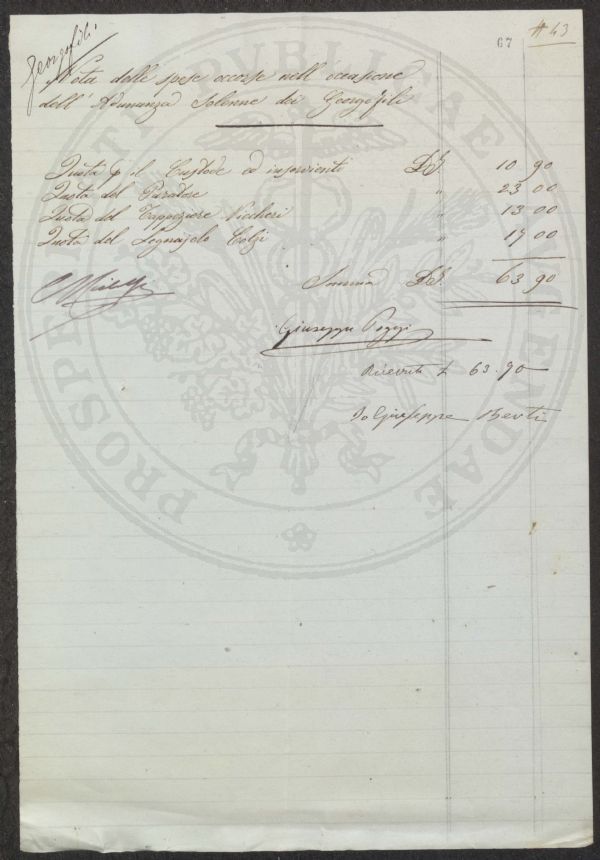 Georgofili.
67
# 43
Nota delle spese occorse nell'occasione
dell'Adunanza Solenne dei Georgofili
Quota p il Custode ed inservienti 10 90
Quota del Paratore " 23 00
Quota del Tappezziere " 13 00
Quota del Legnajolo Colzi " 17 00
Somma 63 90
Giuseppe Poggi
Ricevuto £ 63.90
Io Giuseppe Berti
PROSPERITATI PUBLICAE AUGENDAE